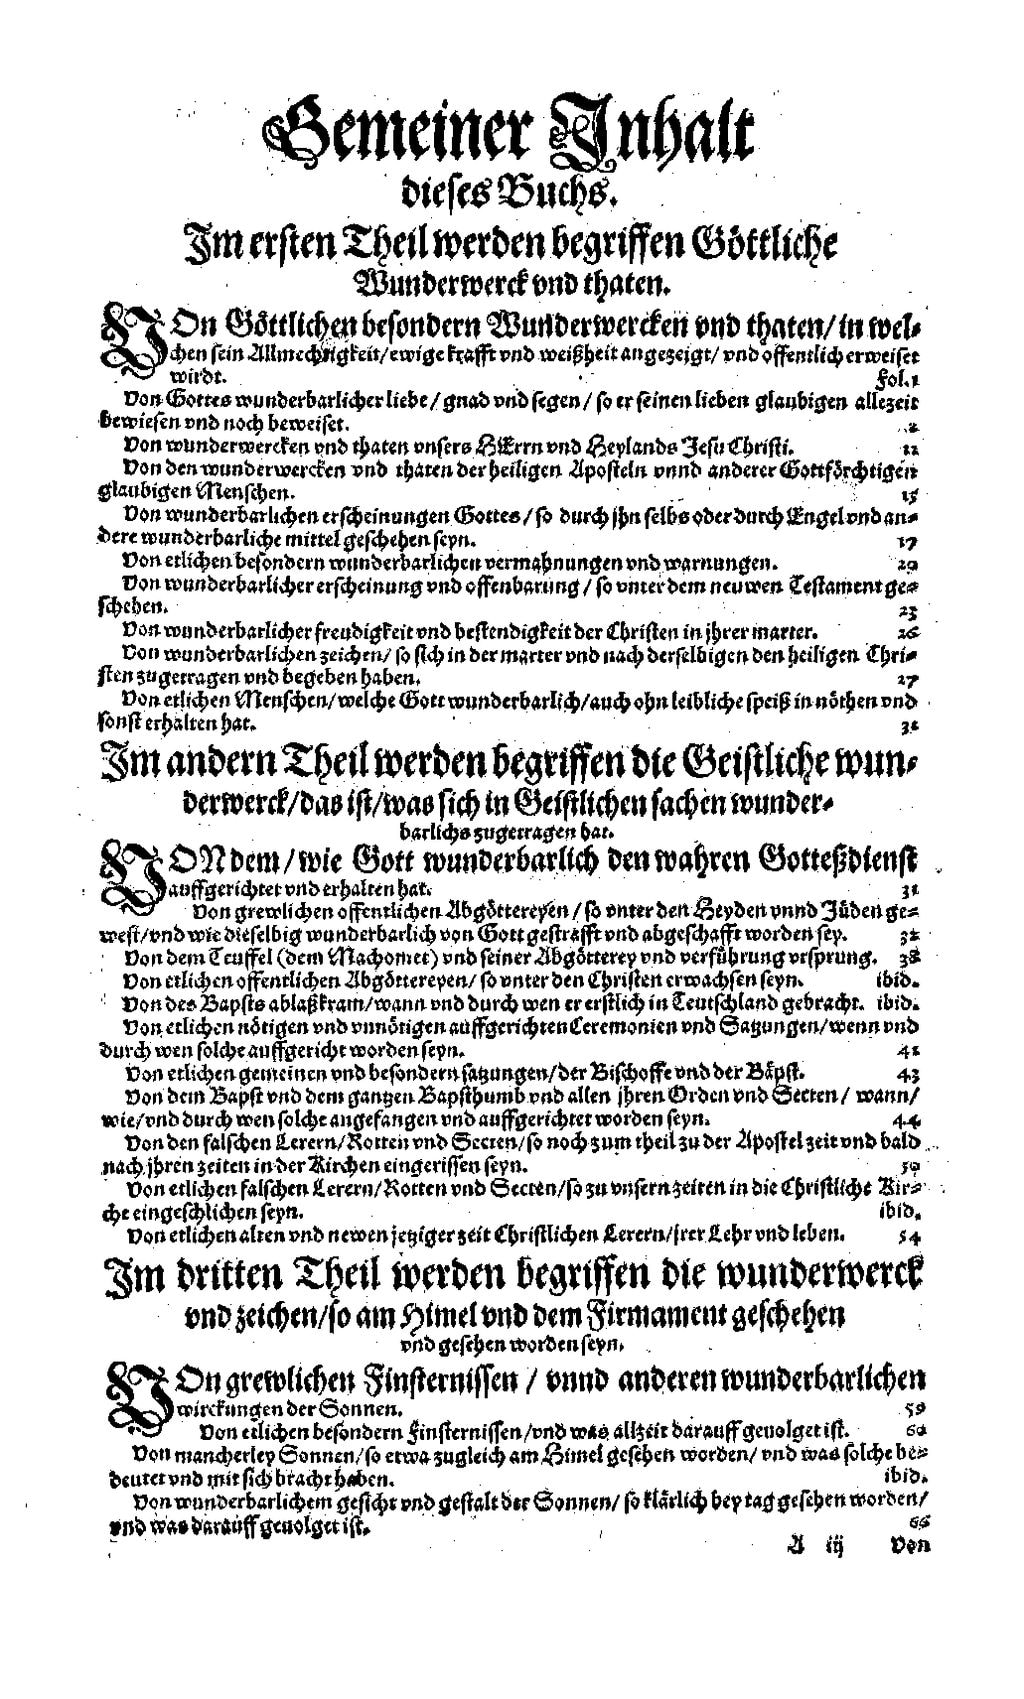 Gemeiner Inhalt
dieses Buchs.
Im ersten Theil werden begriffen Göttliche
Wunderwerck vnd thaten.
VOn Göttlichen besondern Wunderwercken vnd thaten/ in wel-
chen sein Allmechtigkeit/ ewige krafft vnd weißheit angezeigt/ vnd offentlich erweiset
wirdt. Fol. 1
Von Gottes wunderbarlicher liebe/ gnad vnd segen/ so er seinen lieben glaubigen allezeit
bewiesen vnd noch beweiset. 2
Von wunderwercken vnd thaten vnsers HErrn vnd Heylands Jesu Christi. 12
Von den wunderwercken vnd thaten der heiligen Aposteln vnnd anderer Gottförchtigen
glaubigen Menschen. 15
Von wunderbarlichen erscheinungen Gottes/ so durch jhn selbs oder durch Engel vnd an-
dere wunderbarliche mittel geschehen seyn. 17
Von etlichen besondern wunderbarlichen vermahnungen vnd warnungen. 20
Von wunderbarlicher erscheinung vnd offenbarung/ so vnter dem neuwen Testament ge-
schehen. 23
Von wunderbarlicher freudigkeit vnd bestendigkeit der Christen in jhrer marter. 26
Von wunderbarlichen zeichen/ so sich in der marter vnd nach derselbigen den heiligen Chri-
sten zugetragen vnd begeben haben. 27
Von etlichen Menschen/ welche Gott wunderbarlich/ auch ohn leibliche speiß in nöthen vnd
sonst erhalten hat. 31
Im andern Theil werden begriffen die Geistliche wun-
derwerck/ das ist/ was sich in Geistlichen sachen wunder-
barlichs zugetragen hat.
VON dem/ wie Gott wunderbarlich den wahren Gotteßdienst
auffgerichtet vnd erhalten hat. 31
Von grewlichen offentlichen Abgöttereyen/ so vnter den Heyden vnnd Jüden ge-
west/ vnd wie dieselbig wunderbarlich von Gott gestrafft vnd abgeschafft worden sey. 32
Von dem Teuffel (dem Machomet) vnd seiner Abgötterey vnd verführung vrsprung. 38
Von etlichen offentlichen Abgöttereyen/ so vnter den Christen erwachsen seyn. ibid.
Von des Bapsts ablaßkram/ wann vnd durch wen er erstlich in Teutschland gebracht. ibid.
Von etlichen nötigen vnd vnnötigen auffgerichten Ceremonien vnd Satzungen/ wenn vnd
durch wen solche auffgericht worden seyn. 41
Von etlichen gemeinen vnd besondern satzungen/ der Bischoffe vnd der Bäpst. 43
Von dem Bapst vnd dem gantzen Bapsthumb vnd allen jhren Orden vnd Secten/ wann/
wie/ vnd durch wen solche angefangen vnd auffgerichtet worden seyn. 44
Von den falschen Lerern/ Rotten vnd Secten/ so noch zum theil zu der Apostel zeit vnd bald
nach jhren zeiten in der Kirchen eingerissen seyn. 50
Von etlichen falschen Lerern/ Rotten vnd Secten/ so zu vnsern zeiten in die Christliche Kir-
che eingeschlichen seyn. ibid.
Von etlichen alten vnd newen jetziger zeit Christlichen Lerern/ jrer Lehr vnd leben. 54
Im dritten Theil werden begriffen die wunderwerck
vnd zeichen/ so am Himel vnd dem Firmament geschehen
vnd gesehen worden seyn.
VOn grewlichen Finsternissen/ vnnd anderen wunderbarlichen
wirckungen der Sonnen. 59
Von etlichen besondern Finsternissen/ vnd was allzeit darauff geuolget ist. 60
Von mancherley Sonnen/ so etwa zugleich am Himel gesehen worden/ vnd was solche be-
deutet vnd mit sich bracht haben. ibid.
Von wunderbarlichem gesicht vnd gestalt der Sonnen/ so klärlich bey tag gesehen worden/
vnd was darauff geuolget ist. 66
A iij Von